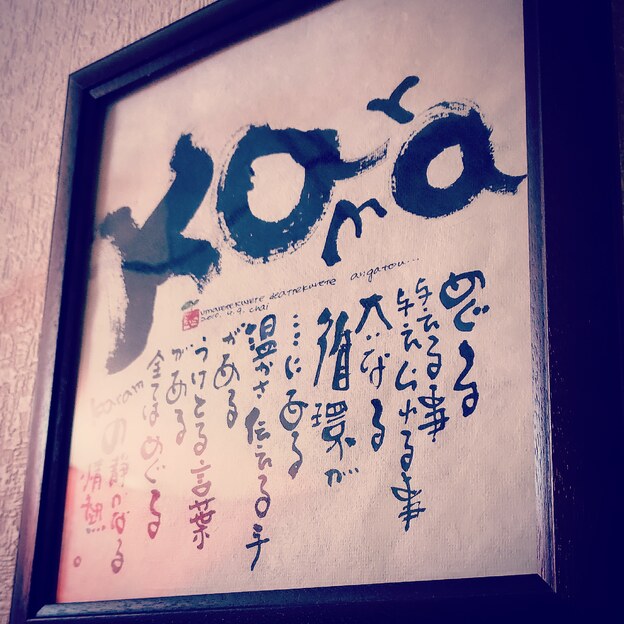 Karma
umaretekurete deattekurete arigatou...
chai
めぐる
与える事
与えられる事
大いなる
循環が
ここにある
温かさ伝える手
がある
うけとる言葉
がある
全てはめぐる
の静かなる
情熱。